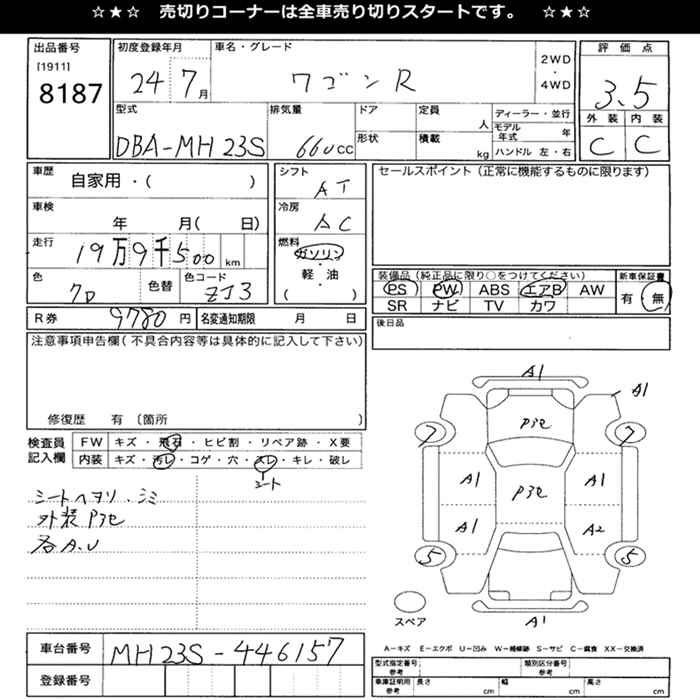 ☆★☆ 売切りコーナーは全車売り切りスタートです。 ☆★☆
出品番号
[1911]
8187
初度登録年月
24 7月
車名・グレード
ワゴンR
2WD
・
4WD
評価点
3.5
外装 内装
C C
型式
DBA-MH23S
排気量
660cc
ドア
形状
定員
人
積載
kg
ディーラー・並行
モデル年式 年
ハンドル 左・右
車歴
自家用・( )
車検
年 月( 日)
走行
19万9千500km
色
色替
色コード
ZJ3
シフト
AT
冷房
AC
燃料
ガソリン
・
軽・油
( )
セールスポイント(正常に機能するものに限ります)
装備品(純正品に限り○をつけてください)
PS PW ABS エアB AW
SR ナビ TV カワ
新車保証書
有・無
R券 9780円
名変通知期限 月 日
後日品
注意事項申告欄(不具合内容等は具体的に記入して下さい)
修復歴 有 〔箇所 〕
検査員記入欄
FW キズ・飛石・ヒビ割・リペア跡・X要
内装 キズ・汚レ・コゲ・穴・スレ・キレ・破レ
シート
シートヘタリ・シミ
外装Pアセ
各A.U
A1
A1
Pアセ
7 7
A1 Pアセ A1
A1 A2
5 5
A1
スペア
車台番号
MH23S-446157
登録番号
A-キズ E-エクボ U-凹み W-補修跡 S-サビ C-腐食 XX-交換済
型式指定番号 参考
類別区分番号 参考
車庫証明用 参考
長さ cm 幅 cm 高さ cm